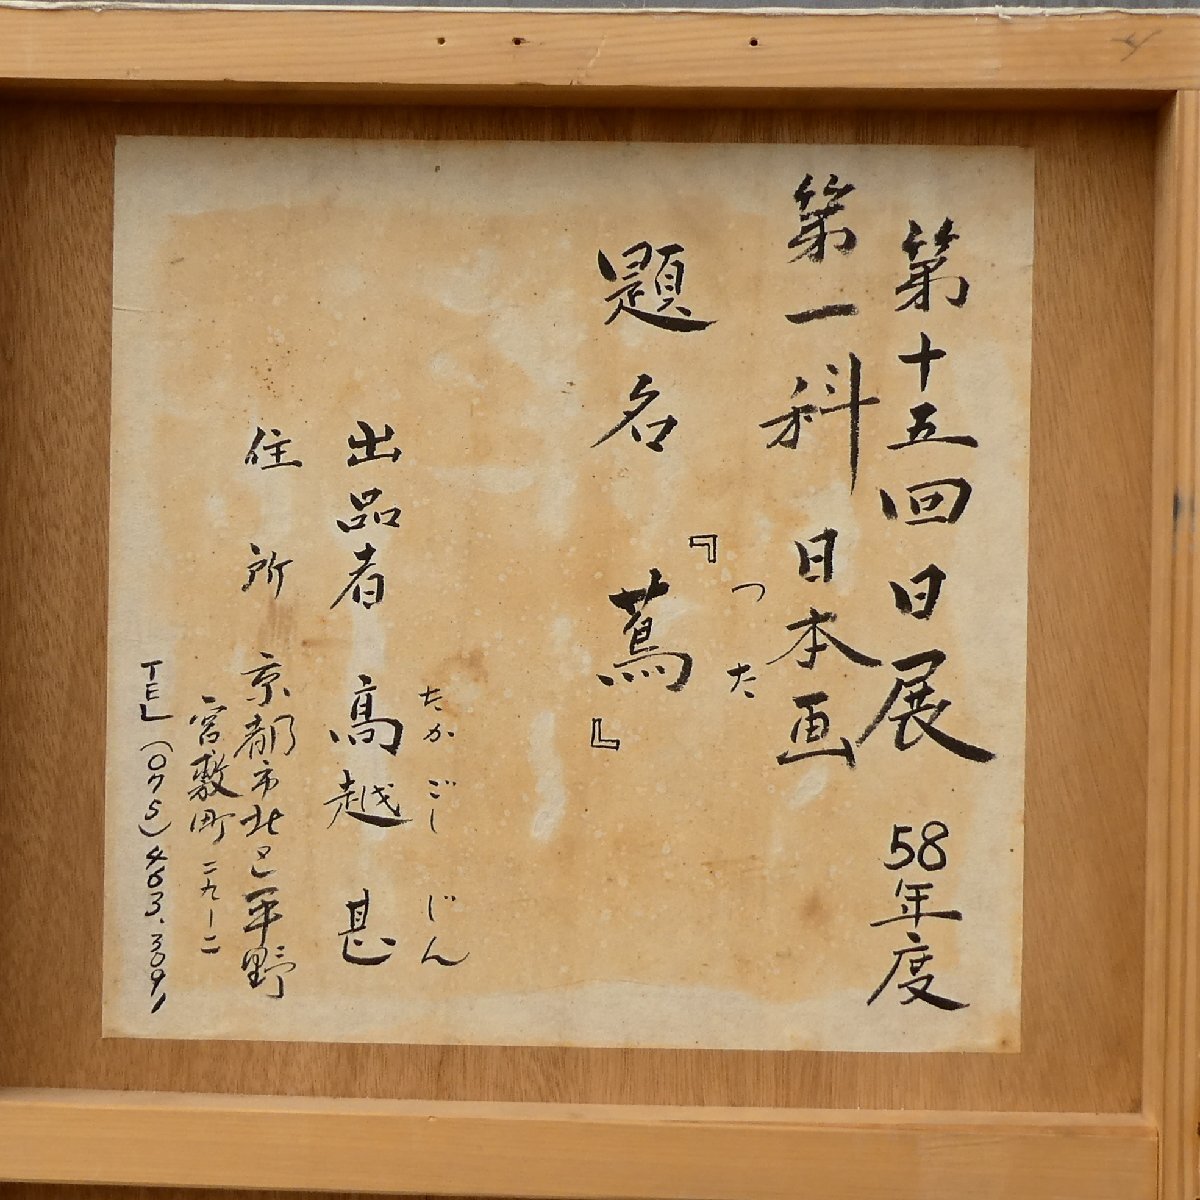 第十五回日展 58年度
第一科 日本画
つた
題名『蔦』
たかごし じん
出品者 髙越 甚
住所 京都市北区平野
宮敷町二九ー二
TEL (075) 463.3091